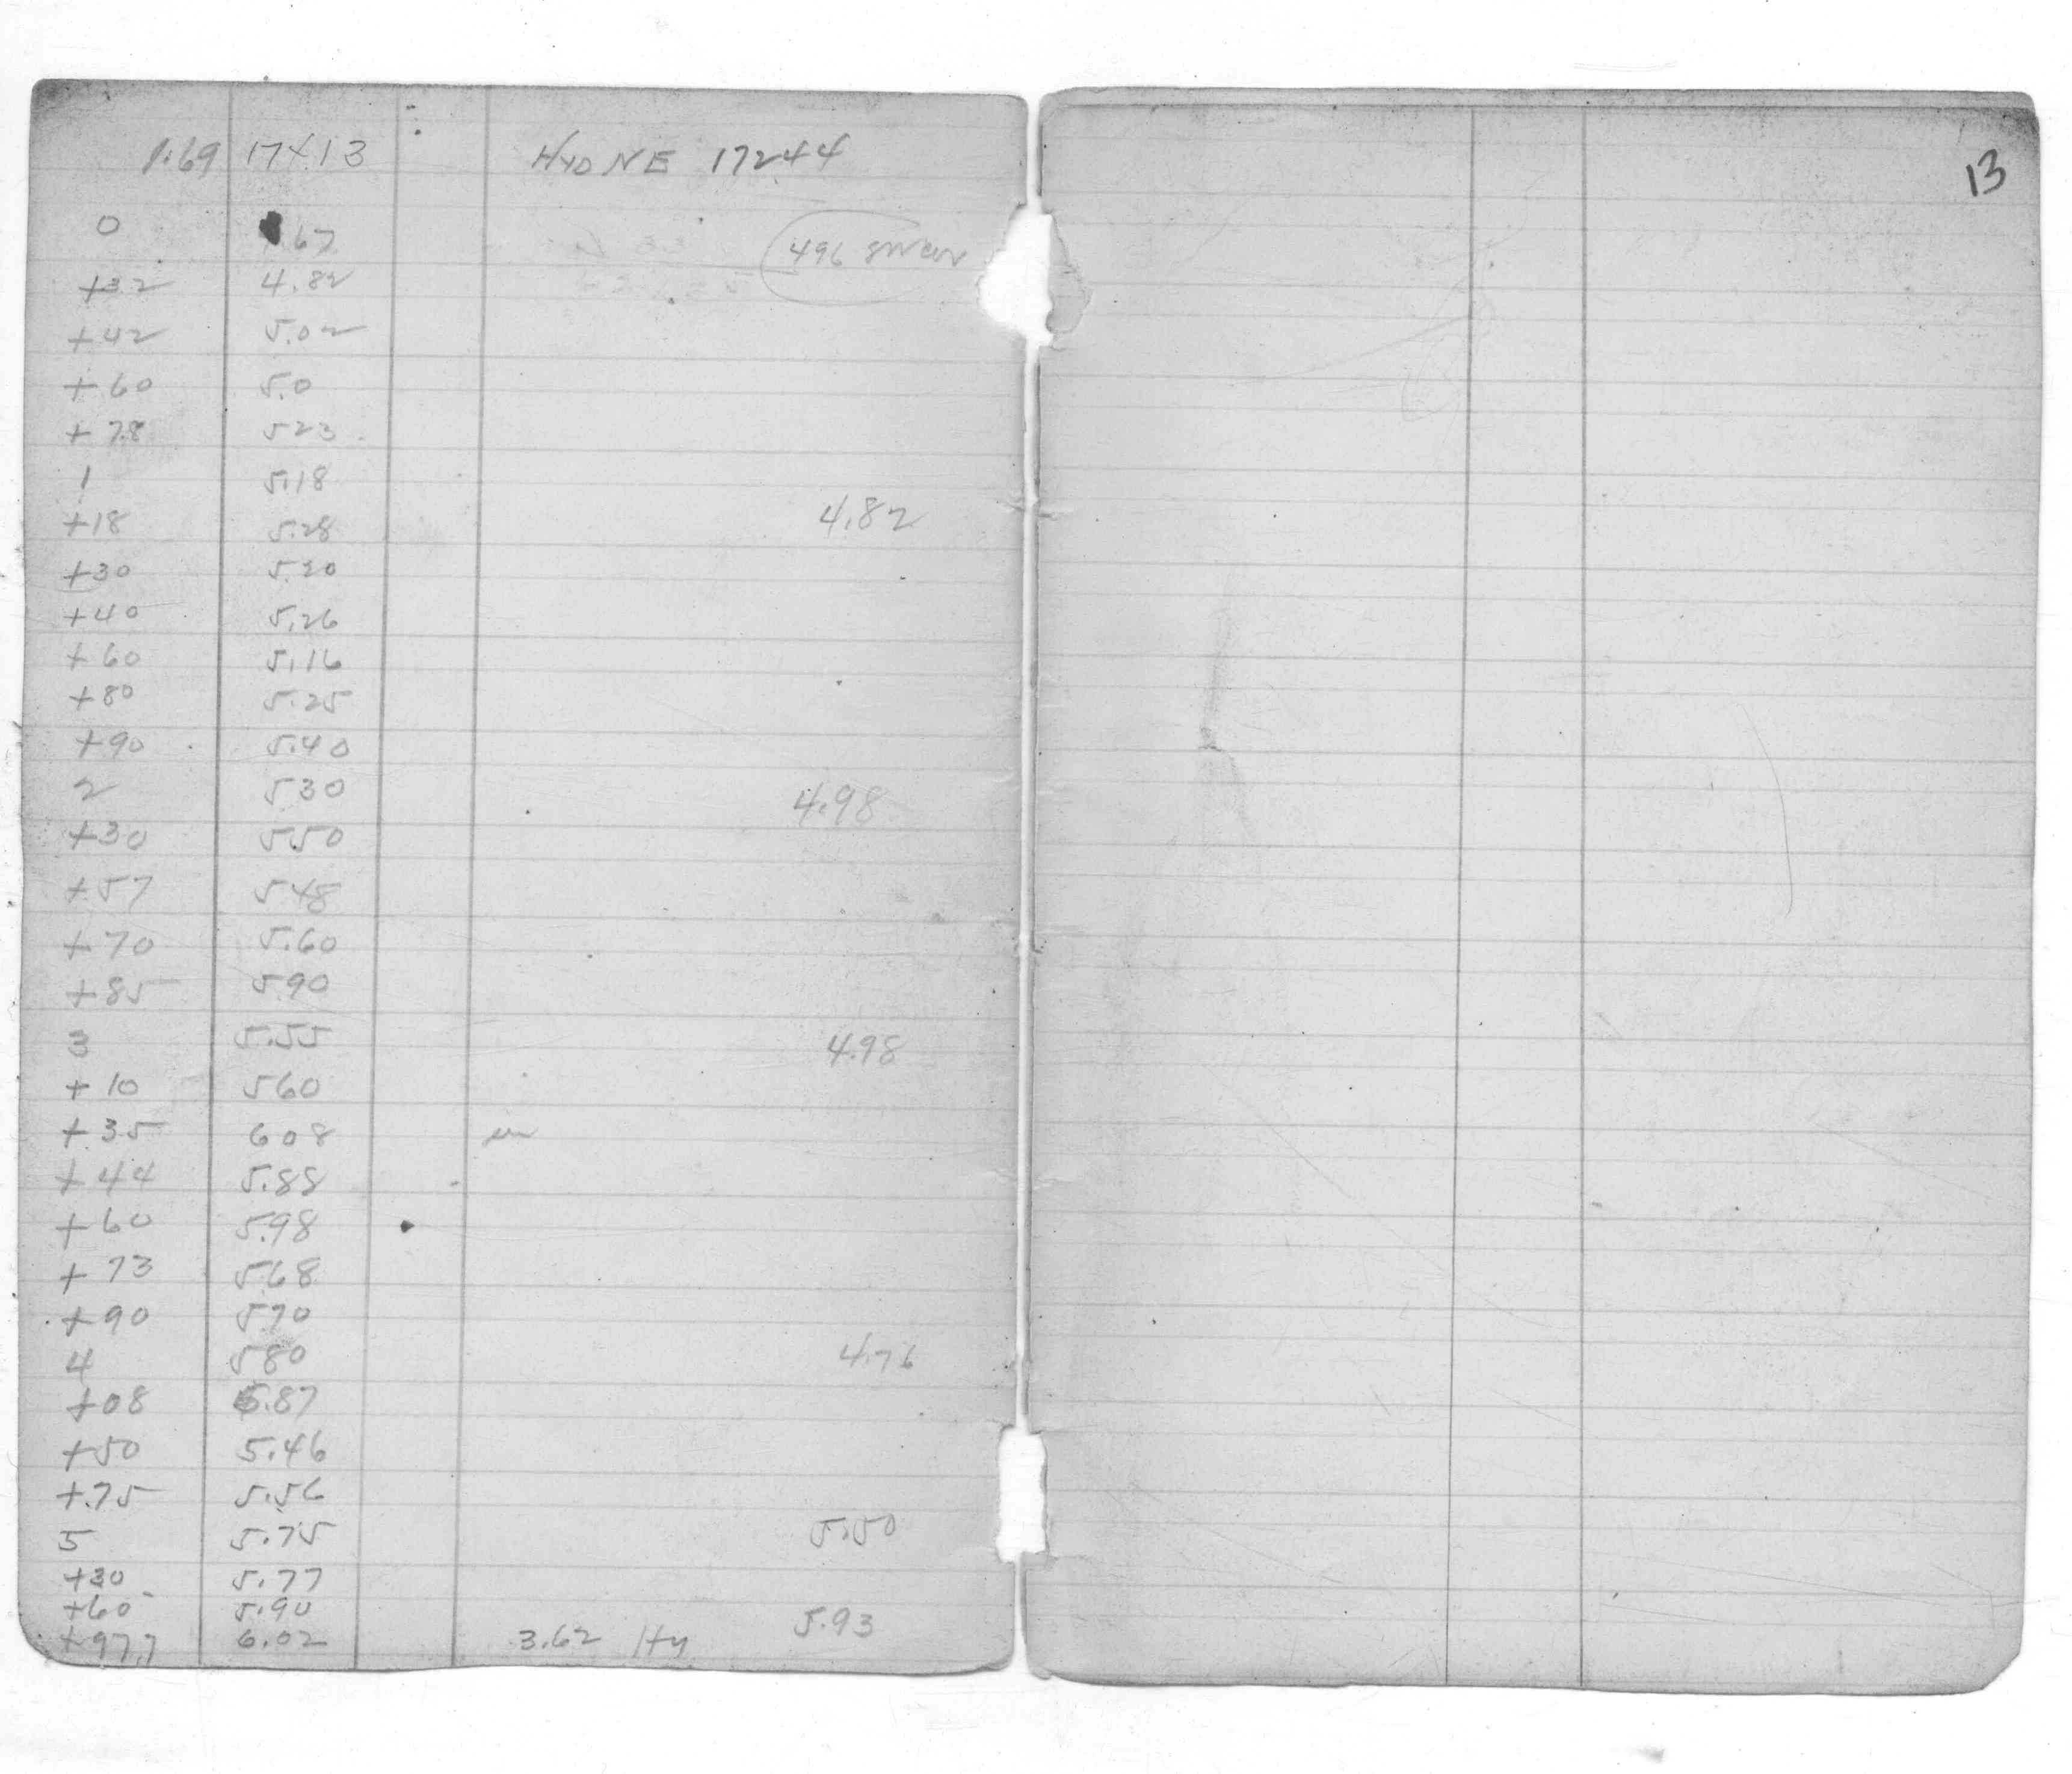 1.69 17413 HYD NE 17244
13
0 .67 496 swan
+32 4.82
+42 5.02
+60 5.0
+78 523
1 5.18
+18 5.28 4.82
+30 5.20
+40 5.26
+60 5.16
+80 5.25
+90 5.40
2 530 4.98
+30 550
+57 548
+70 5.60
+85 590
3 5.55 4.98
+10 560
+35 608
+44 5.88
+60 5.98
+73 568
+90 570
4 580 4.76
+08 5.87
+50 5.46
+.75 5.56
5 5.75 5.50
+30 5.77
+60 5.90
+97.7 6.02 3.62 Hy 5.93